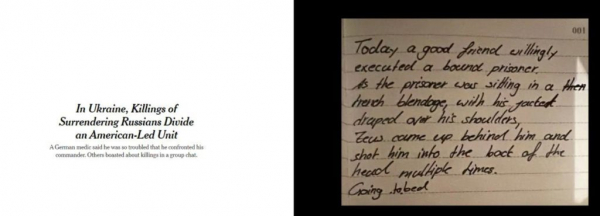 In Ukraine, Killings of
Surrendering Russians Divide
an American-Led Unit
A German medic said he was so troubled that he confronted his
commander. Others boasted about killings in a group chat.
001
Today a good friend willingly
executed a bound prisoner.
As the prisoner was sitting in a then
trench blendage, with his jacket
draped over his shoulders,
Zeus came up behind him and
shot him into the back of the
head multiple times.
Going to bed